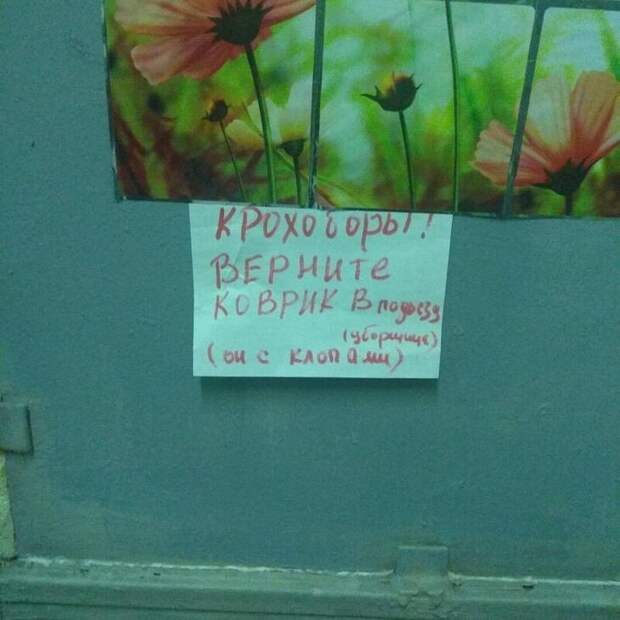 КРОХОборы!
ВЕРНИТе
КОВРИК В подъезд
(уборщице)
(он с клопами)